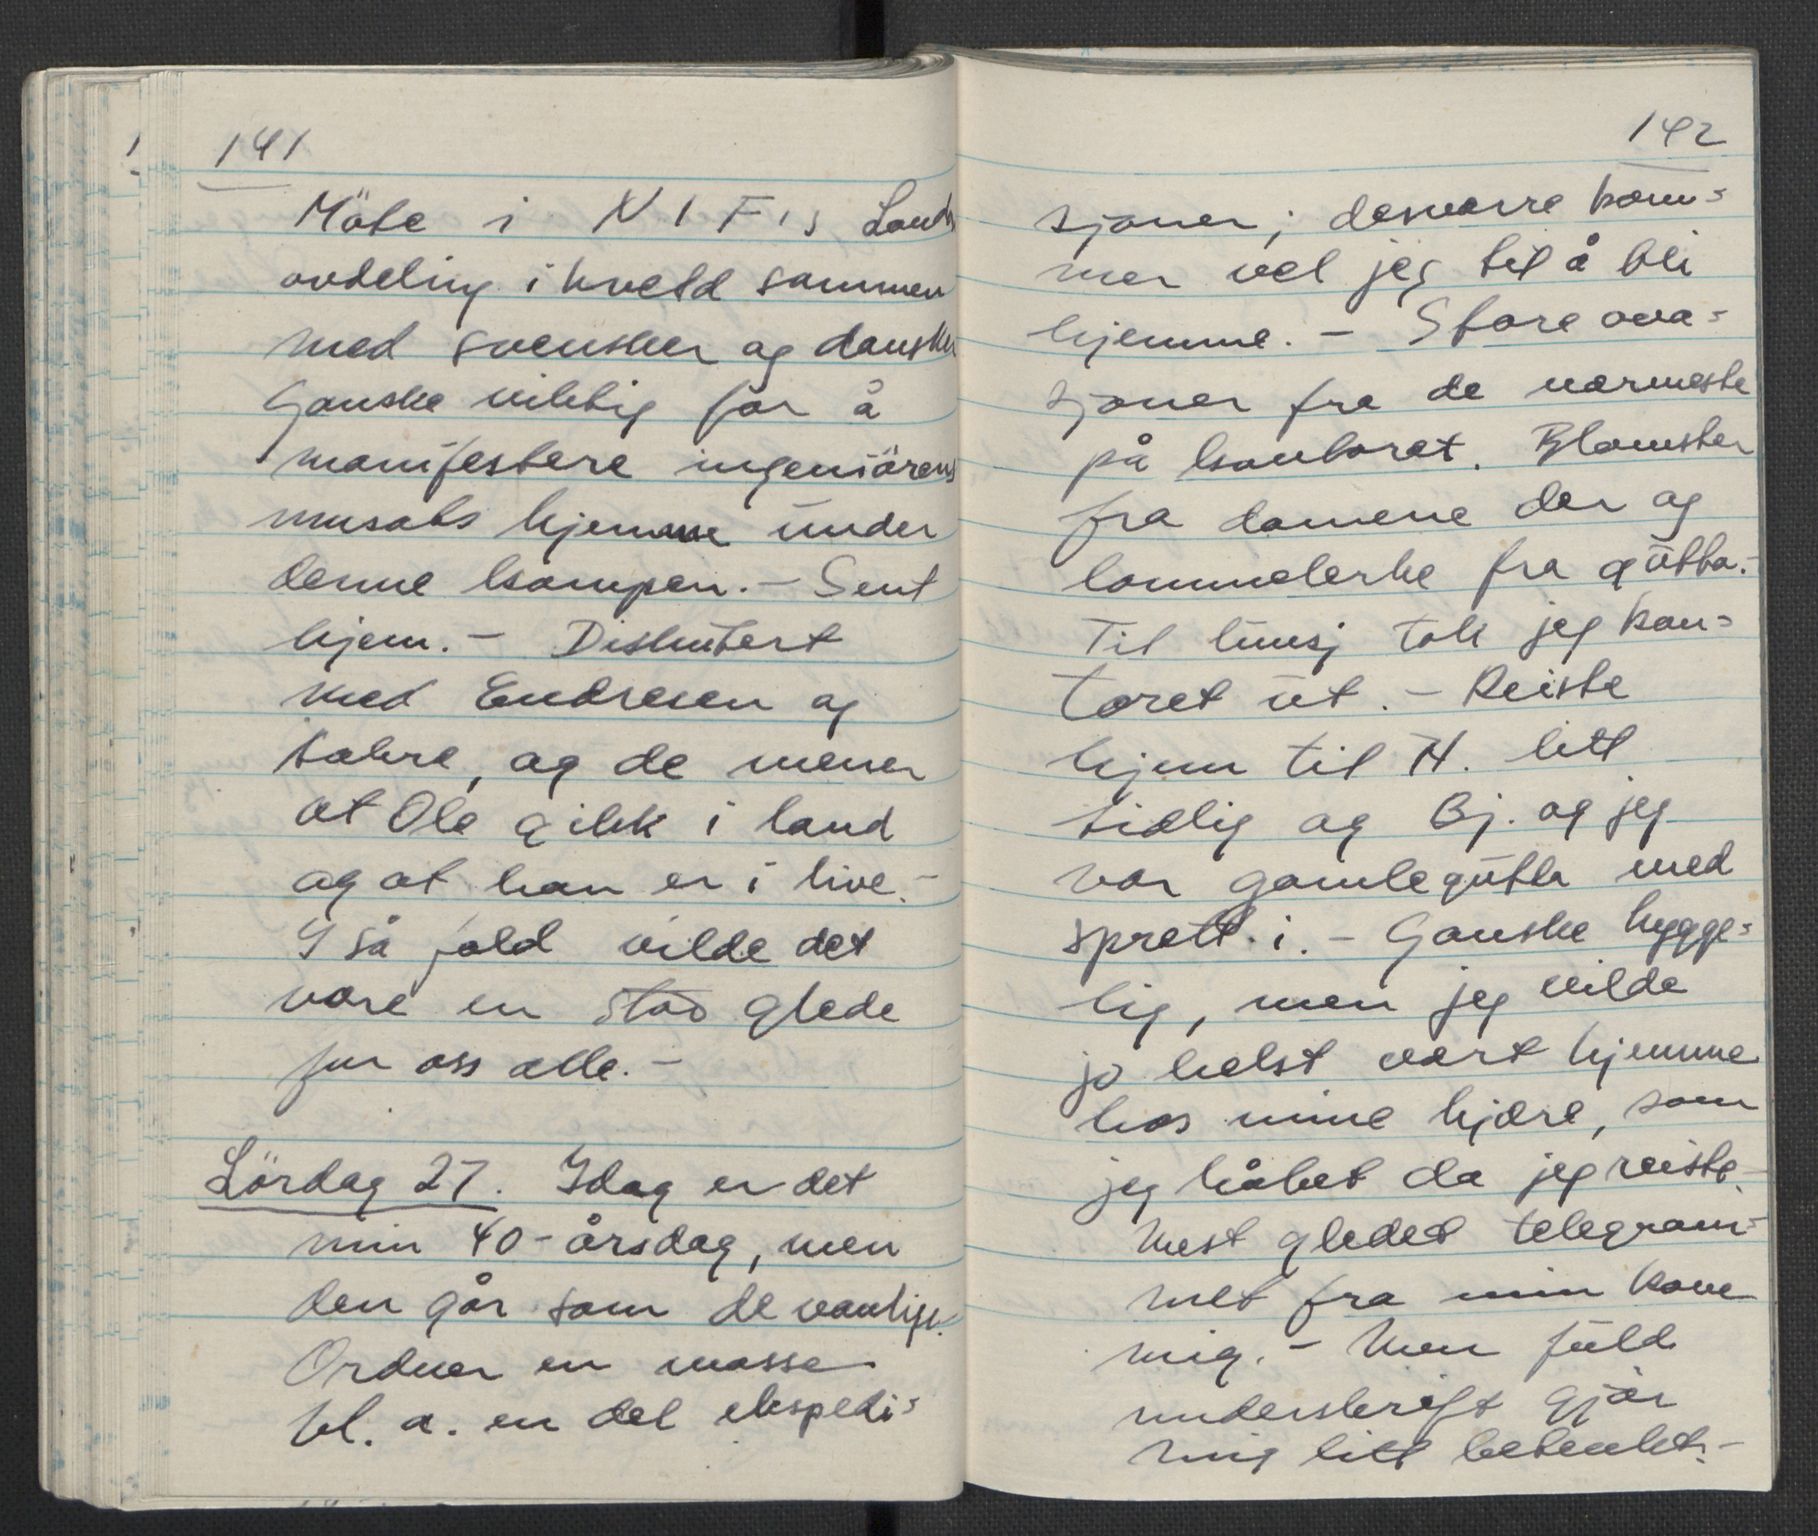 141
Möte i NIF's Lands
avdeling i kveld sammen
med svensker og dansker
Ganske viktig for å
manifestere ingeniörens
innsats hjemme under
denne kampen. – Sent
hjem. – Diskutert
med Endresen og
, og de mener
at Ole gikk i land
og at han er i live. –
I så fald vilde det
være en stor glede
for oss alle. –
Lördag 27. Idag er det
min 40-årsdag, men
den går som de vanlige.
Ordner en masse
bl. a. en del ekspedi=
142
sjoner; desværre kom=
mer vel jeg til å bli
hjemme. – Store ova=
sjoner fra de nærmeste
på kontoret. Blomster
fra damene der og
lommelerke fra gutta. –
Til lunsj tok jeg kon=
toret ut. – Reiste
hjem til H. litt
tidlig og Bj. og jeg
var gamlegutta med
sprett i. – Ganske hygge=
lig, men jeg vilde
jo helst vært hjemme
hos mine kjære, som
jeg håbet da jeg reiste.
Mest gledet telegram=
met fra min kone
mig. – Men fuld
underskrift gjör
mig litt betenkt. –